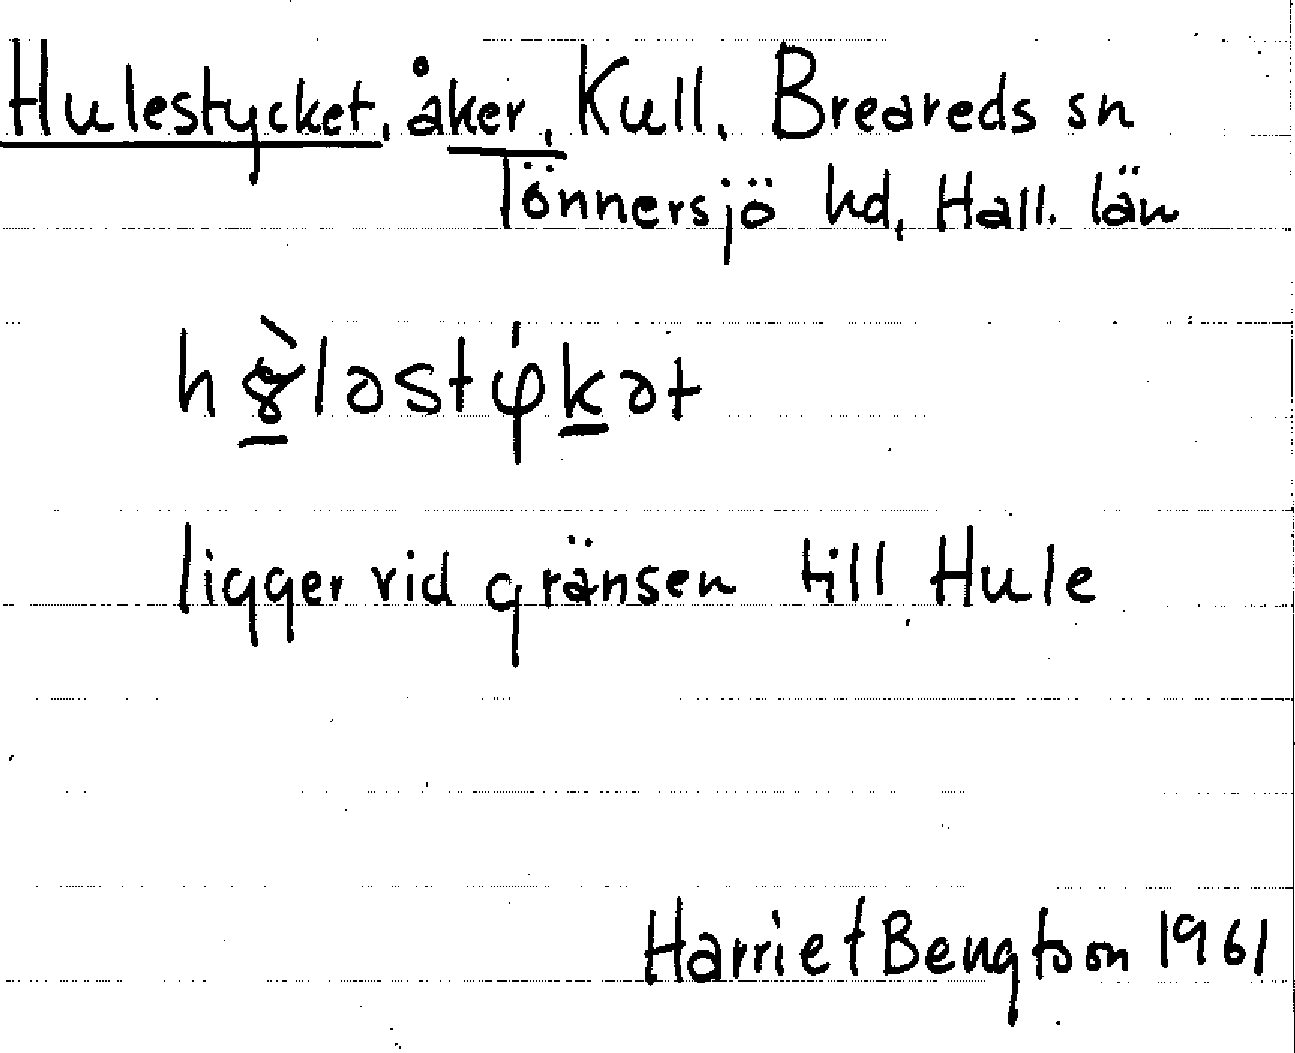 Hulestycket, åker, Kull, Breareds sn
Tönnersjö hd, Hall. län
ligger vid gränsen till Hule
Harriet Bengtson 1961